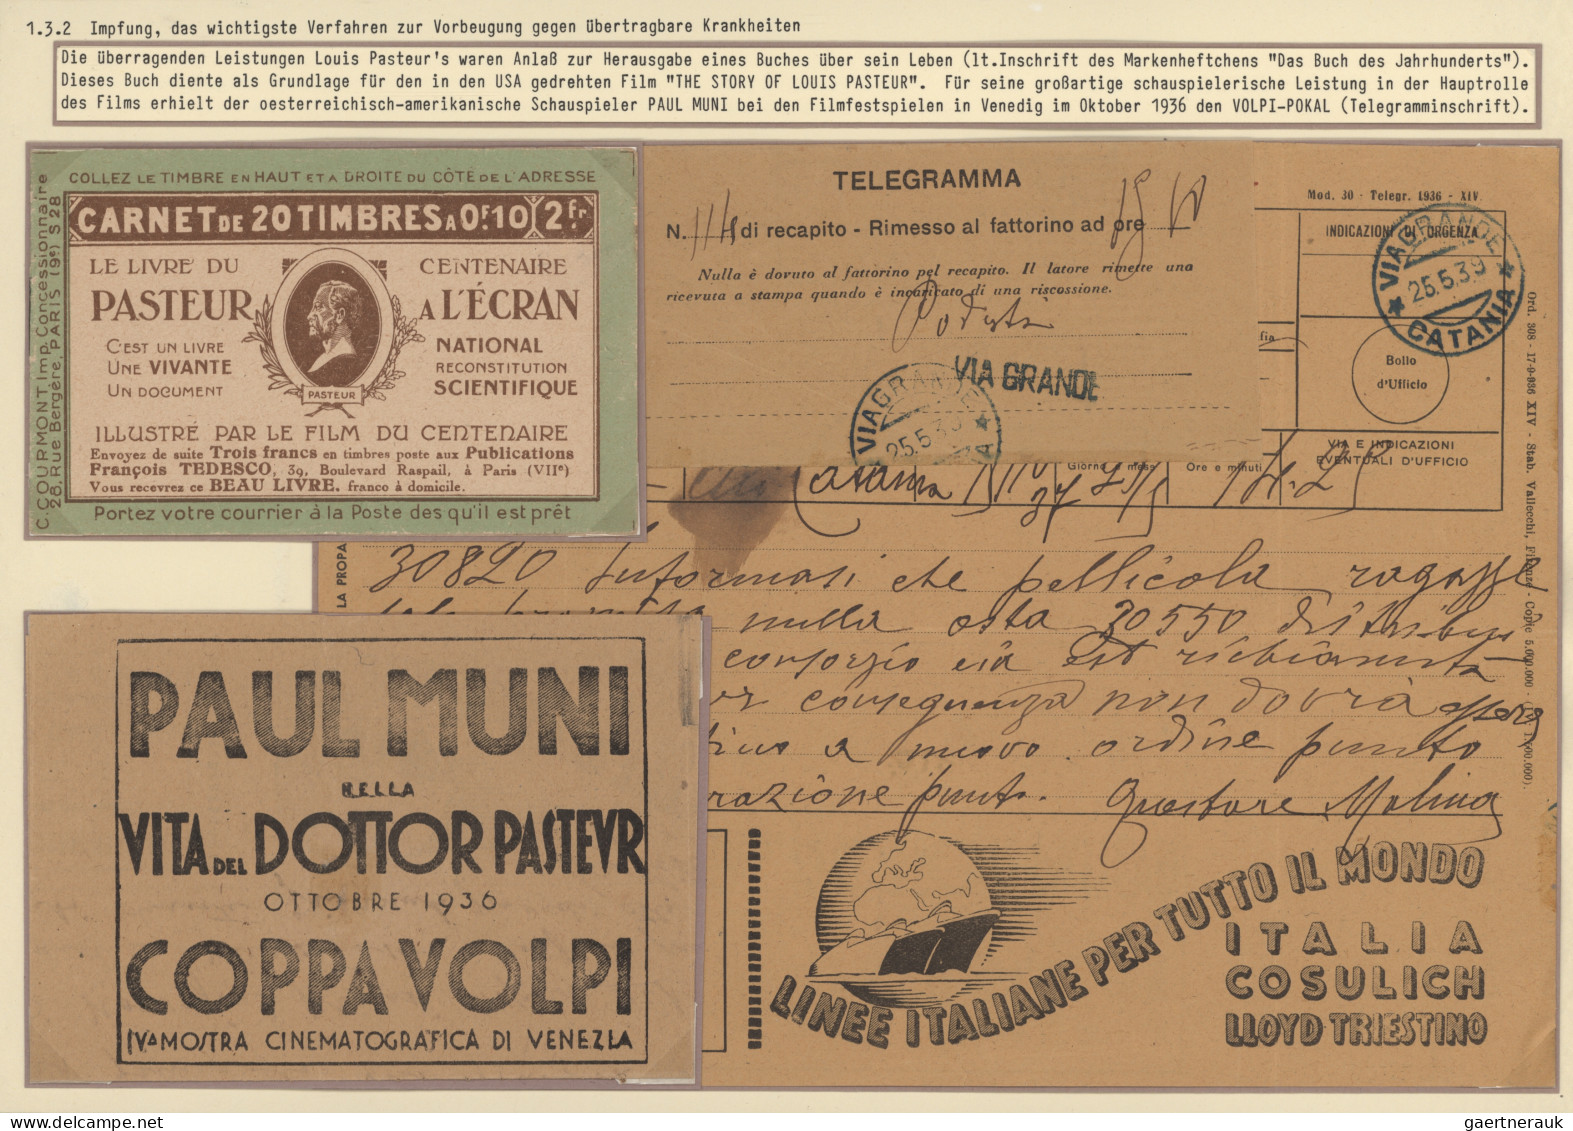 1.3.2 Impfung, das wichtigste Verfahren zur Vorbeugung gegen übertragbare Krankheiten
Die überragenden Leistungen Louis Pasteur's waren Anlaß zur Herausgabe eines Buches über sein Leben (lt.Inschrift des Markenheftchens "Das Buch des Jahrhunderts").
Dieses Buch diente als Grundlage für den in den USA gedrehten Film "THE STORY OF LOUIS PASTEUR". Für seine großartige schauspielerische Leistung in der Hauptrolle
des Films erhielt der oesterreichisch-amerikanische Schauspieler PAUL MUNI bei den Filmfestspielen in Venedig im Oktober 1936 den VOLPI-POKAL (Telegramminschrift).
C. COURMONT Imp. Concessionnaire
28, Rue Bergère, PARIS (9e) S 28
COLLEZ LE TIMBRE EN HAUT ET A DROITE DU CÔTÉ DE L'ADRESSE
CARNET DE 20 TIMBRES A 0F.10 2 Fr.
LE LIVRE DU CENTENAIRE
PASTEUR A L'ÉCRAN
C'EST UN LIVRE NATIONAL
UNE VIVANTE RECONSTITUTION
UN DOCUMENT SCIENTIFIQUE
PASTEUR
ILLUSTRÉ PAR LE FILM DU CENTENAIRE
Envoyez de suite Trois francs en timbres poste aux Publications
François TEDESCO, 39, Boulevard Raspail, à Paris (VIIe)
Vous recevrez ce BEAU LIVRE. franco à domicile.
Portez votre courrier à la Poste dès qu'il est prêt
TELEGRAMMA
N. 114 di recapito - Rimesso al fattorino ad ore
Nulla è dovuto al fattorino pel recapito. Il latore rimette una
ricevuta a stampa quando è incaricato di una riscossione.
Podestà
VIAGRANDE
25.5.39
VIA GRANDE
Mod. 30 - Telegr. 1936 - XIV
INDICAZIONI DI URGENZA
VIAGRANDE
25.5.39
CATANIA
Bollo
d'Ufficio
VIA E INDICAZIONI
EVENTUALI D'UFFICIO
Giorno e mese Ore e minuti
Catania
Ord. 308 - 17-9-936 XIV - Stab. Vallecchi, Firenze - Copie 5.000.000
LA PROPA
30820 Informasi che pellicola ragazze
nulla osta 30550
consorzio est richiamata
conseguenza non dovrà
a nuovo ordine punto
razione punto. Questore Molina
PAUL MUNI
NELLA
VITA DEL DOTTOR PASTEVR
OTTOBRE 1936
COPPA VOLPI
IVA MOSTRA CINEMATOGRAFICA DI VENEZIA
LINEE ITALIANE PER TUTTO IL MONDO
ITALIA
COSULICH
LLOYD TRIESTINO
gaertnerauk